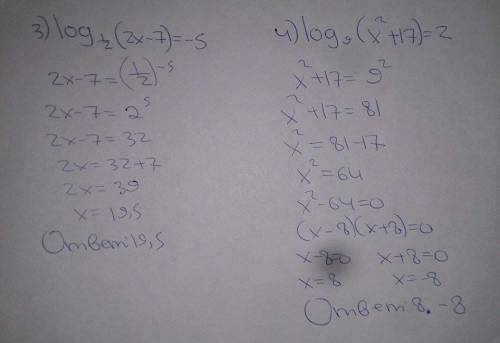 3) log₁/₂(2x-7)=-5
2x-7=(1/2)⁻⁵
2x-7=2⁵
2x-7=32
2x=32+7
2x=39
x=19,5
Ответ: 19,5
4) log₉(x²+17)=2
x²+17=9²
x²+17=81
x²=81-17
x²=64
x²-64=0
(x-8)(x+8)=0
x-8=0 x+8=0
x=8 x=-8
Ответ: 8. -8